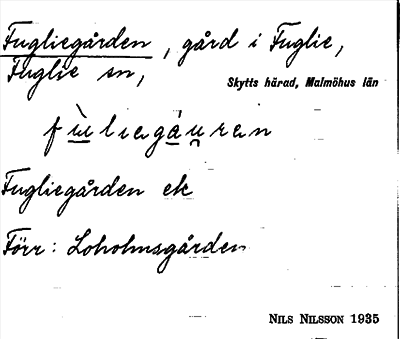 Fugliegården, gård i Fuglie,
Fuglie sn,
Skytts härad, Malmöhus län
fù̱liega̱u̱rein
Fugliegården ek
Förr: Loholmsgården
NILS NILSSON 1935